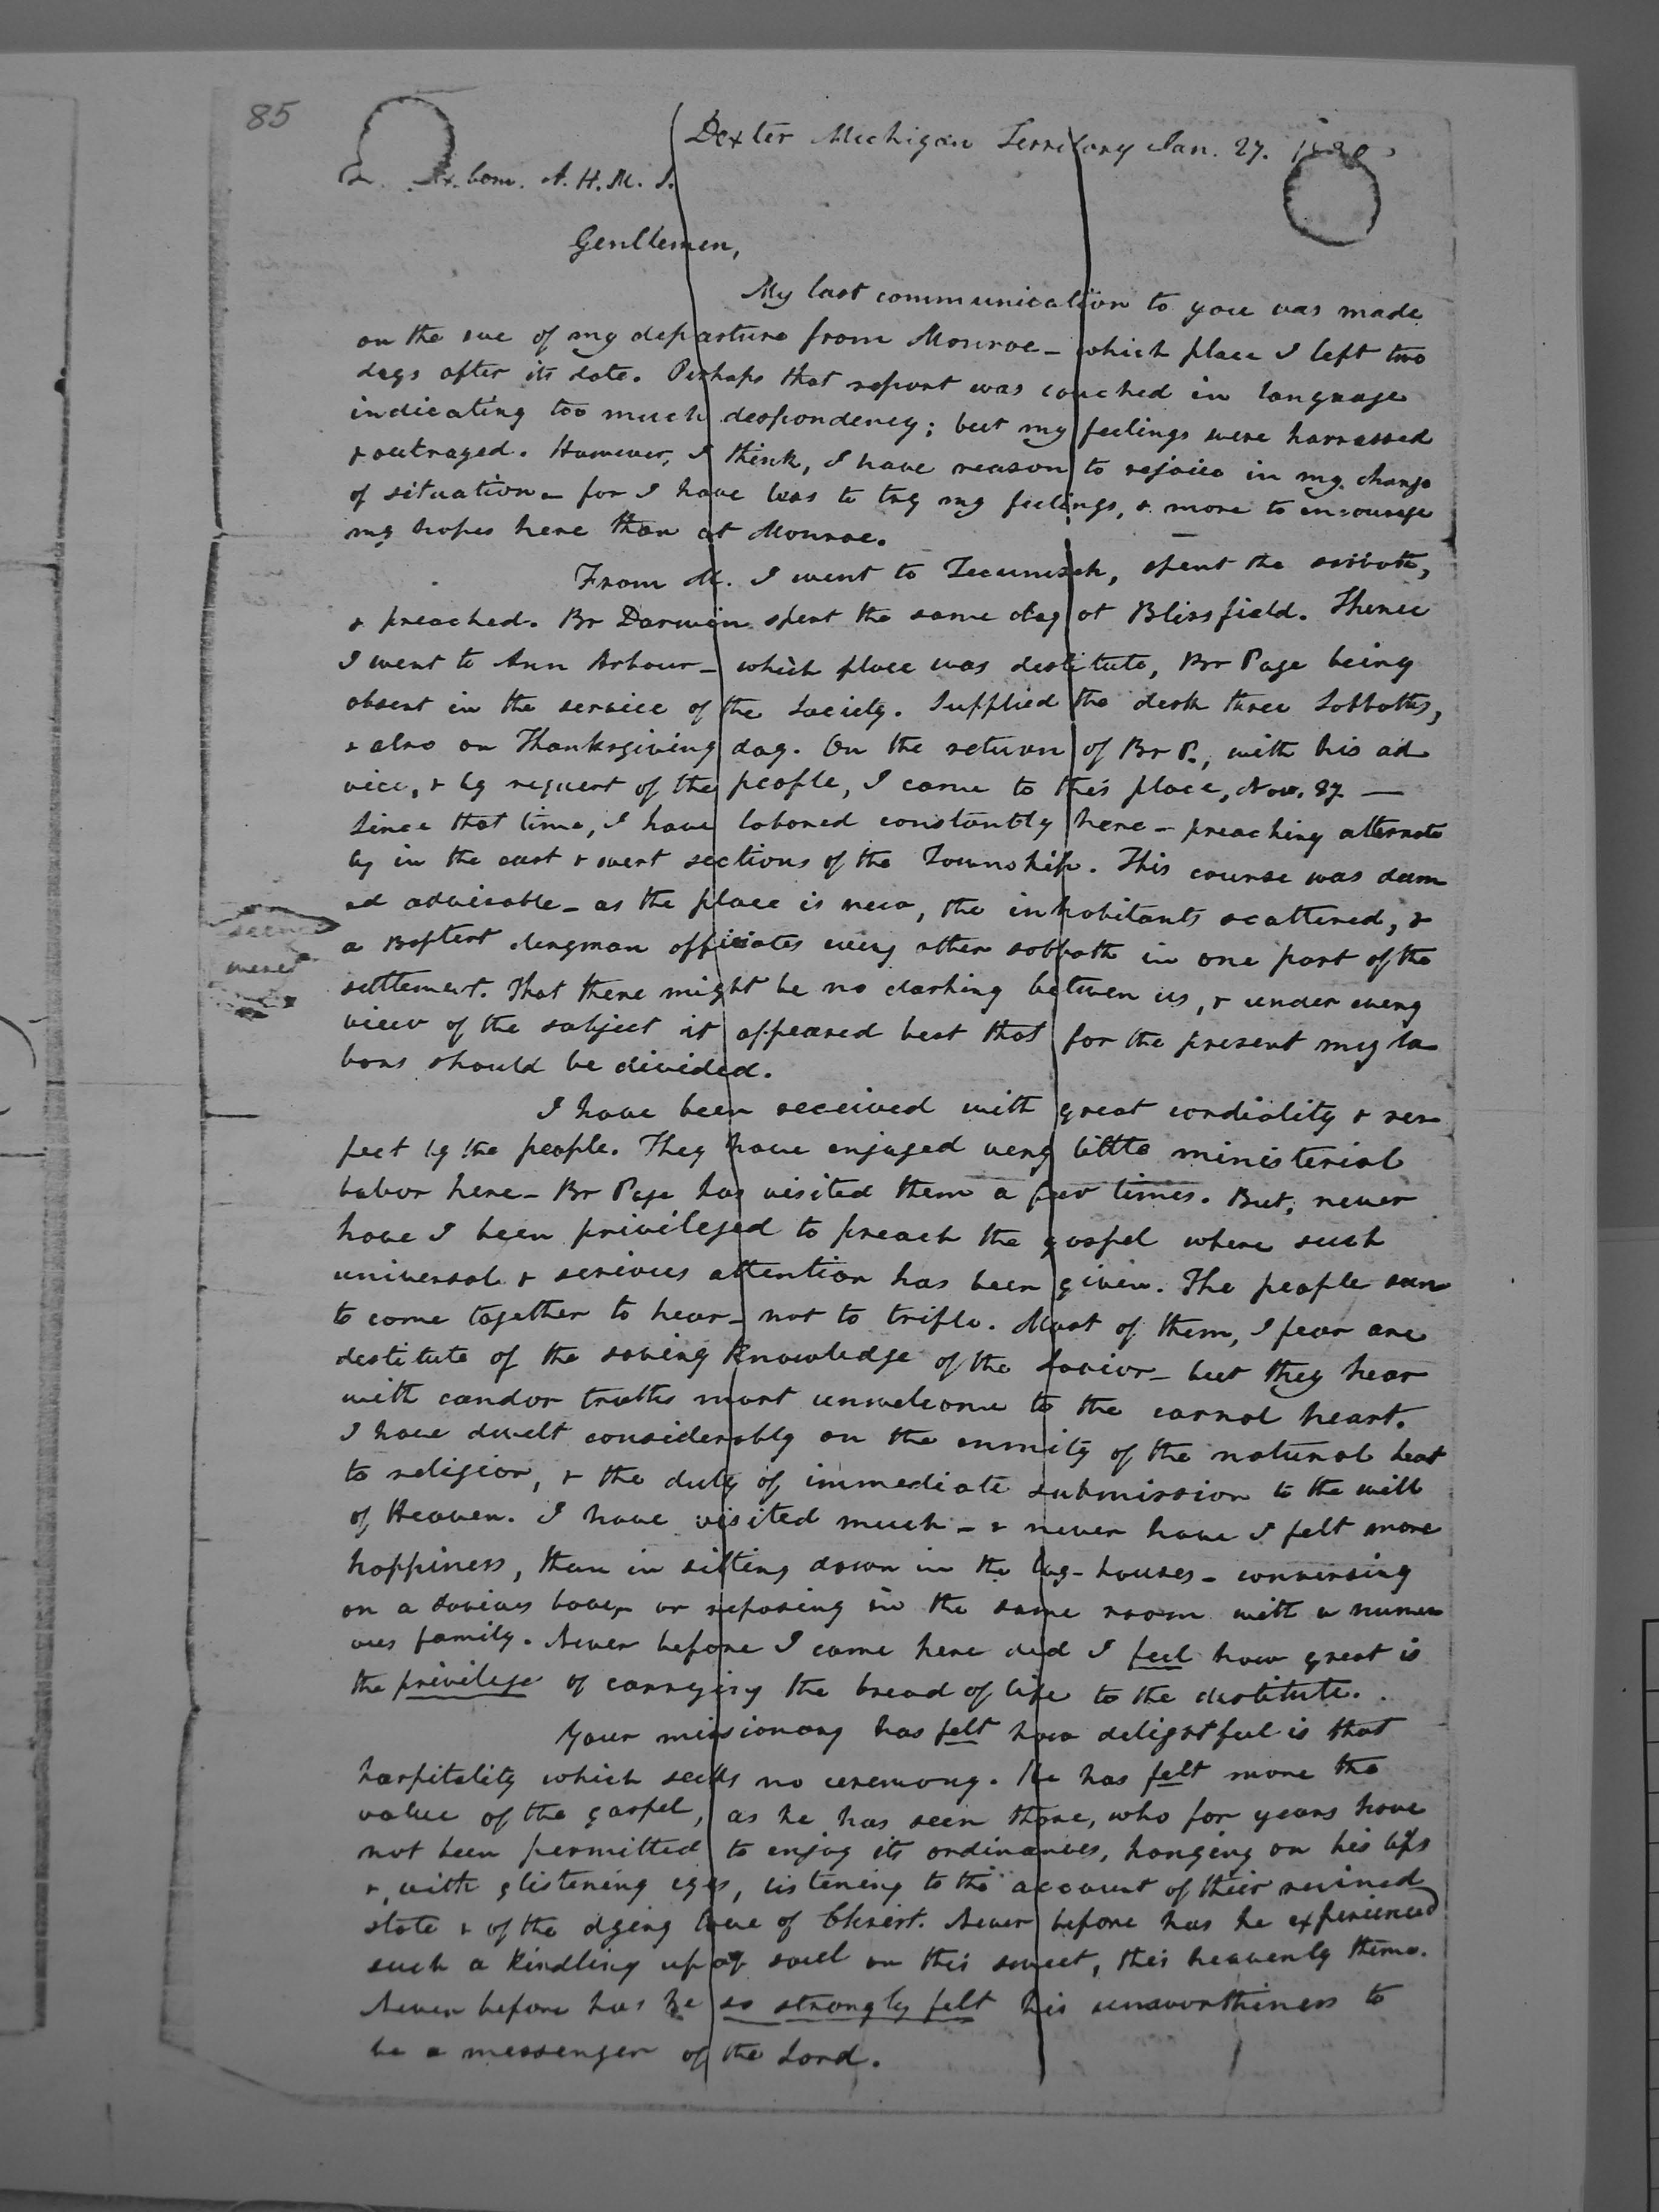 85
Dexter Michigan Territory Jan. 27.
Ex. Com. A. H. M. S.
Gentlemen,
My last communication to you was made
on the eve of my departure from Monroe - which place I left two
days after its date. Perhaps that report was couched in language
indicating too much despondency; but my feelings were harrassed
& outraged. However, I think, I have reason to rejoice in my change
of situation - for I have less to try my feelings, & more to encourage
my hopes here than at Monroe.
From M. I went to Tecumseh, spent the sabbath,
& preached. Br Darwin spent the same day at Blissfield. Thence
I went to Ann Arbour - which place was destitute, Br Page being
absent in the service of the Society. Supplied the desk three Sabbaths,
& also on Thanksgiving day. On the return of Br P., with his ad
vice, & by request of the people, I came to this place, Nov. 27 —
Since that time, I have labored constantly here - preaching alternate
ly in the east & west sections of the Township. This course was deem
ed advisable - as the place is new, the inhabitants scattered, &
a Baptist clergman officiates every other sabbath in one part of the
settlement. That there might be no clashing between us, & under every
view of the subject it appeared best that for the present my la
bors should be divided.
I have been received with great cordiality & res
pect by the people. They have enjoyed very little ministerial
labor here - Br Page has visited them a few times. But, never
have I been privileged to preach the gospel where such
universal & serious attention has been given. The people seem
to come together to hear - not to trifle. Most of them, I fear are
destitute of the saving knowledge of the Savior - but they hear
with candor truths most unwelcome to the carnal heart.
I have dwelt considerably on the enmity of the natural heart
to religion, & the duty of immediate submission to the will
of Heaven. I have visited much - & never have I felt more
happiness, than in sitting down in the log-houses - conversing
on a Saviours love, or reposing in the same room with a numer
ous family. Never before I came here did I feel how great is
the privilege of carrying the bread of life to the destitute.
Your missionary has felt how delightful is that
hospitality which seeks no ceremony. He has felt more the
value of the gospel, as he has seen those, who for years have
not been permitted to enjoy its ordinances, hanging on his lips
&, with glistening eyes, listening to the account of their ruined
state & of the dying love of Christ. Never before has he experienced
such a kindling up of soul on this sweet, this heavenly theme.
Never before has he so strongly felt his unworthiness to
be a messenger of the Lord.